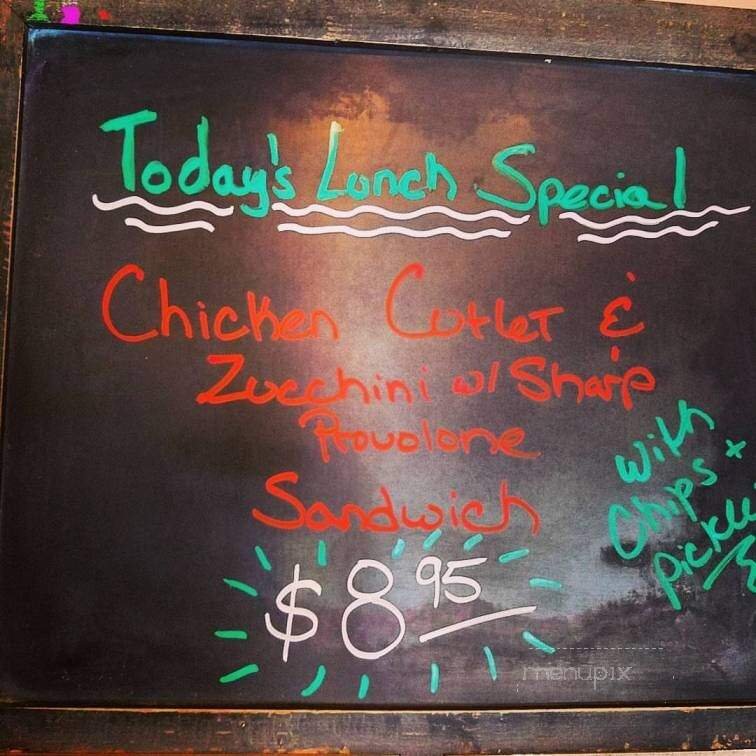 Today's Lunch Special
Chicken Cutlet &
Zucchini w/ Sharp
Provolone
Sandwich
$8.95
With
Chips +
pickle
menupix